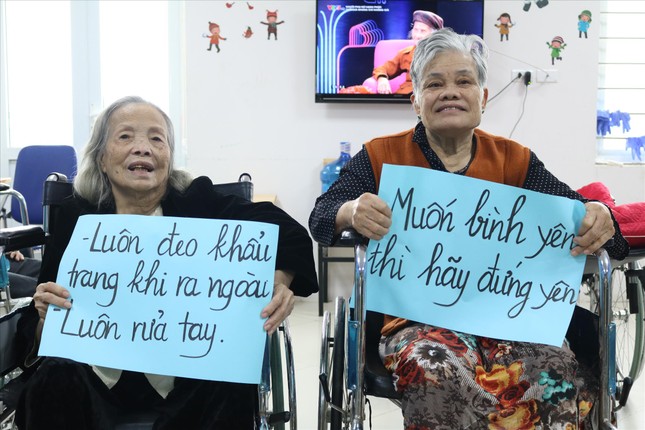 -Luôn đeo khẩu
trang khi ra ngoài
-Luôn rửa tay.
Muốn bình yên
thì hãy đứng yên